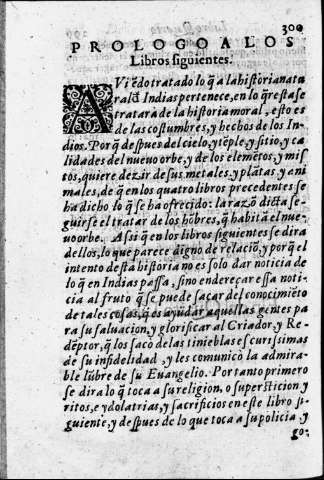 300
PROLOGO A LOS
Libros siguientes.
AViẽdo tratado lo q̃ a la historia natu
ral d' Indias pertenece, en lo q̃ resta se
tratarà de la historia moral, esto es
de las costumbres, y hechos de los In-
dios. Porq̃ despues del cielo, y tẽple, y sitio, y ca
lidades del nueuo orbe, y de los elemẽtos, y mis
tos, quiere dezir de sus metales, y plãtas, y ani
males, de q̃ en los quatro libros precedentes se
ha dicho lo q̃ se ha ofrecido: la razõ dicta se-
guirse el tratar de los hõbres, q̃ habitã el nue-
uo orbe. Assi q̃ en los libros siguientes se dira
dellos, lo que parece digno de relaciõ, y porq̃ el
intento desta historia no es solo dar noticia de
lo q̃ en Indias passa, sino endereçar essa noti-
cia al fruto q̃ se puede sacar del conocimiẽto
de tales cosas, q̃ es ayudar aquellas gentes pa
ra su saluacion, y glorificar al Criador, y Re-
dẽptor, q̃ los sacò de las tinieblas escurissimas
de su infidelidad, y les comunicò la admira-
ble lũbre de su Euangelio. Por tanto primero
se dira lo q̃ toca a su religion, o supersticion, y
ritos, e ydolatrias, y sacrificios en este libro si-
guiente, y despues de lo que toca a su policia, y
go-